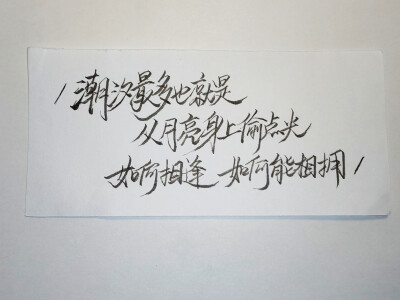 /潮汐最多也就是
从月亮身上偷点光
如何相逢 如何能相拥/